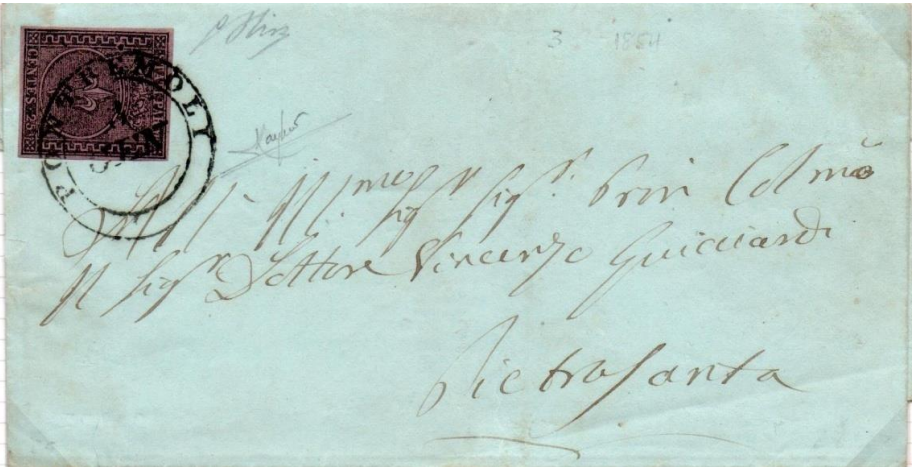 3 1854
CENTES. 25
PONTREMOLI
All' Ill.mo Sig.r Sig.r Pron Col.mo
Il Sig.r Dottore Vincenzo Guicciardi
Pietrasanta